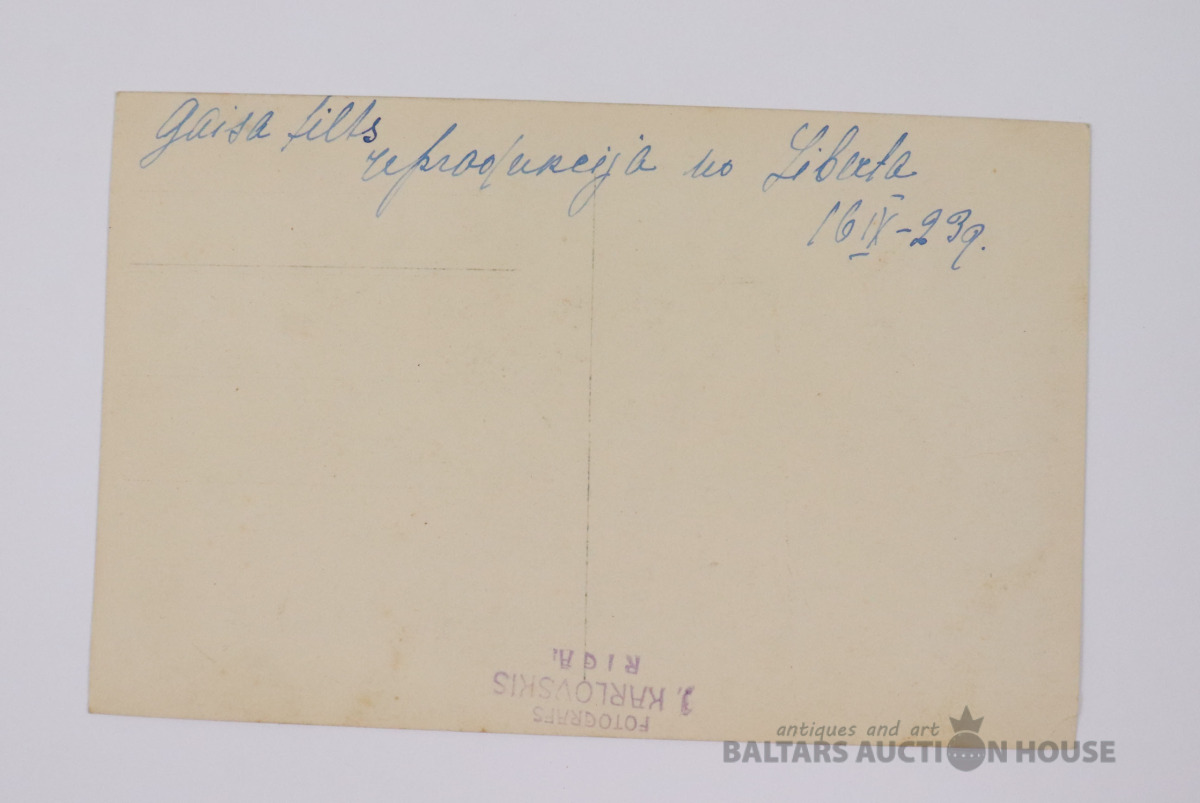 Gaisa tilts
reprodukcija no Liberta
16 IX - 23 g.
FOTOGRAFS
J. KARLOVSKIS
RIGĀ.
antiques and art
BALTARS AUCTION HOUSE